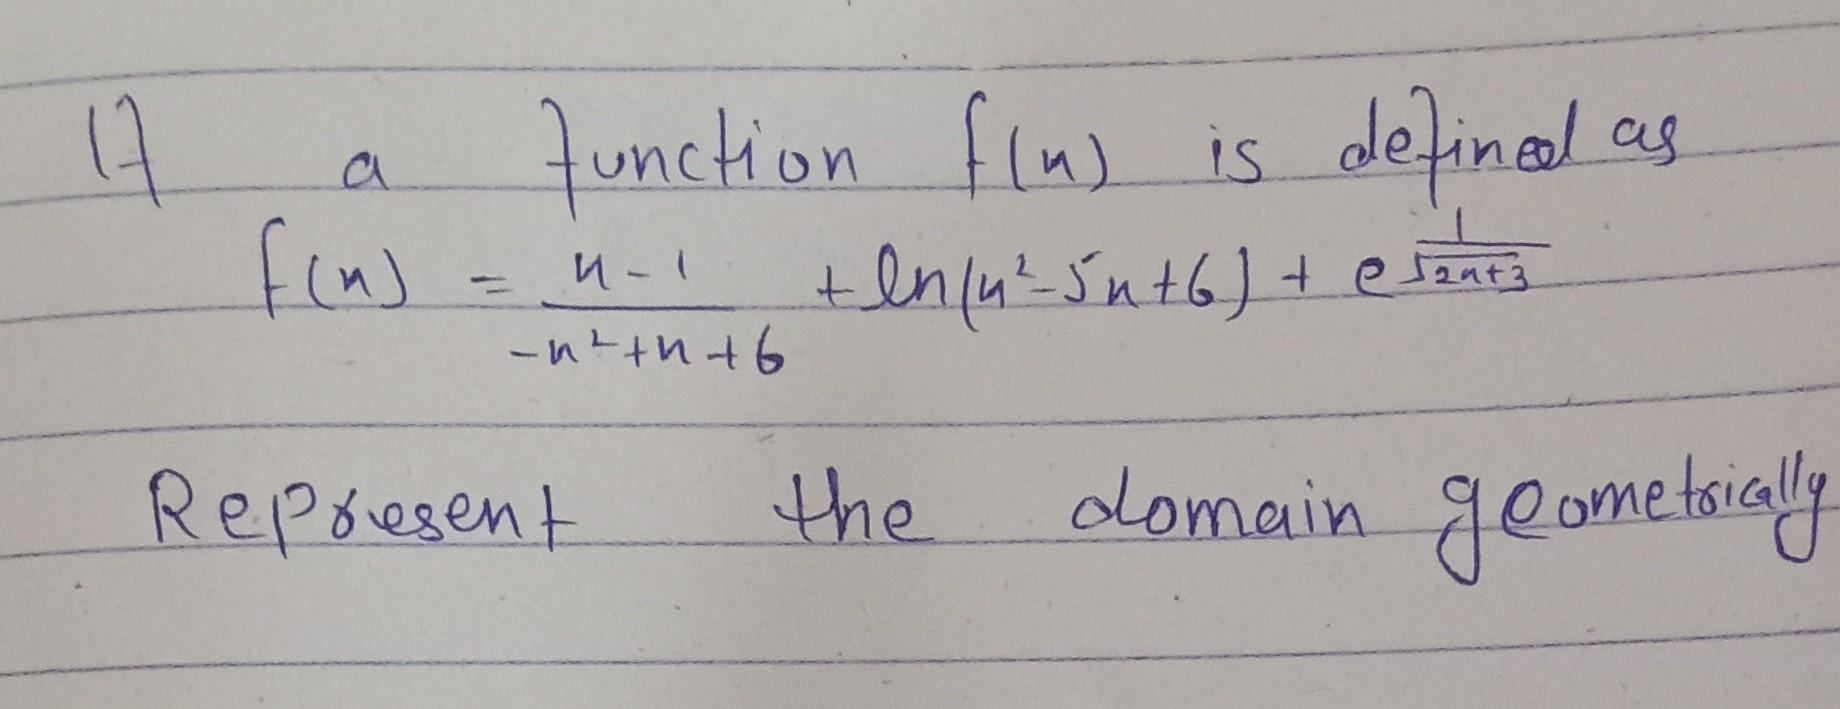 If a function f(x) is defined as
f(x) = x-1/-x²+x+6 + ln(x²-5x+6) + e^1/√2x+3
Represent the domain geometrically